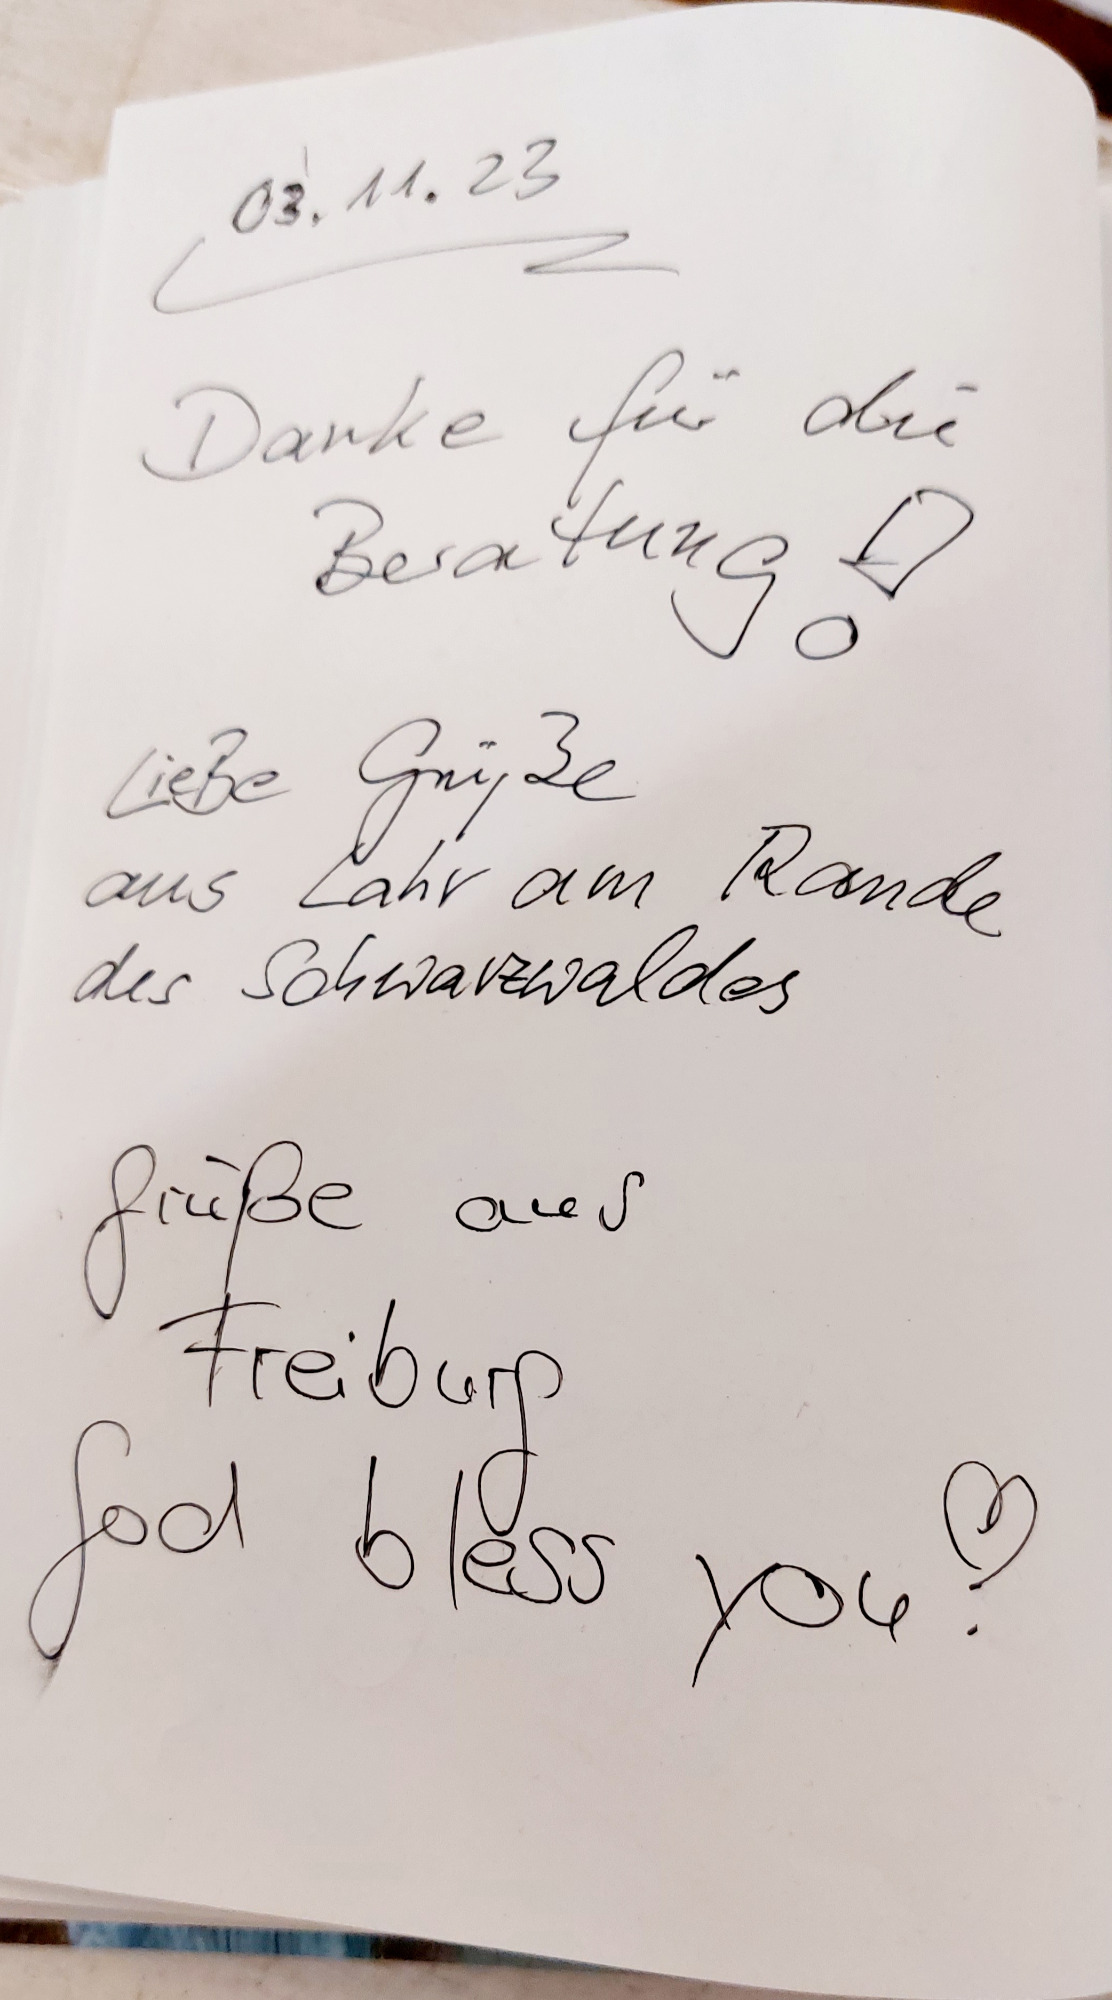 03.11.23
Danke für die
Beratung!
Liebe Grüße
aus Lahr am Rande
des Schwarzwaldes
Grüße aus
Freiburg
God bless you!